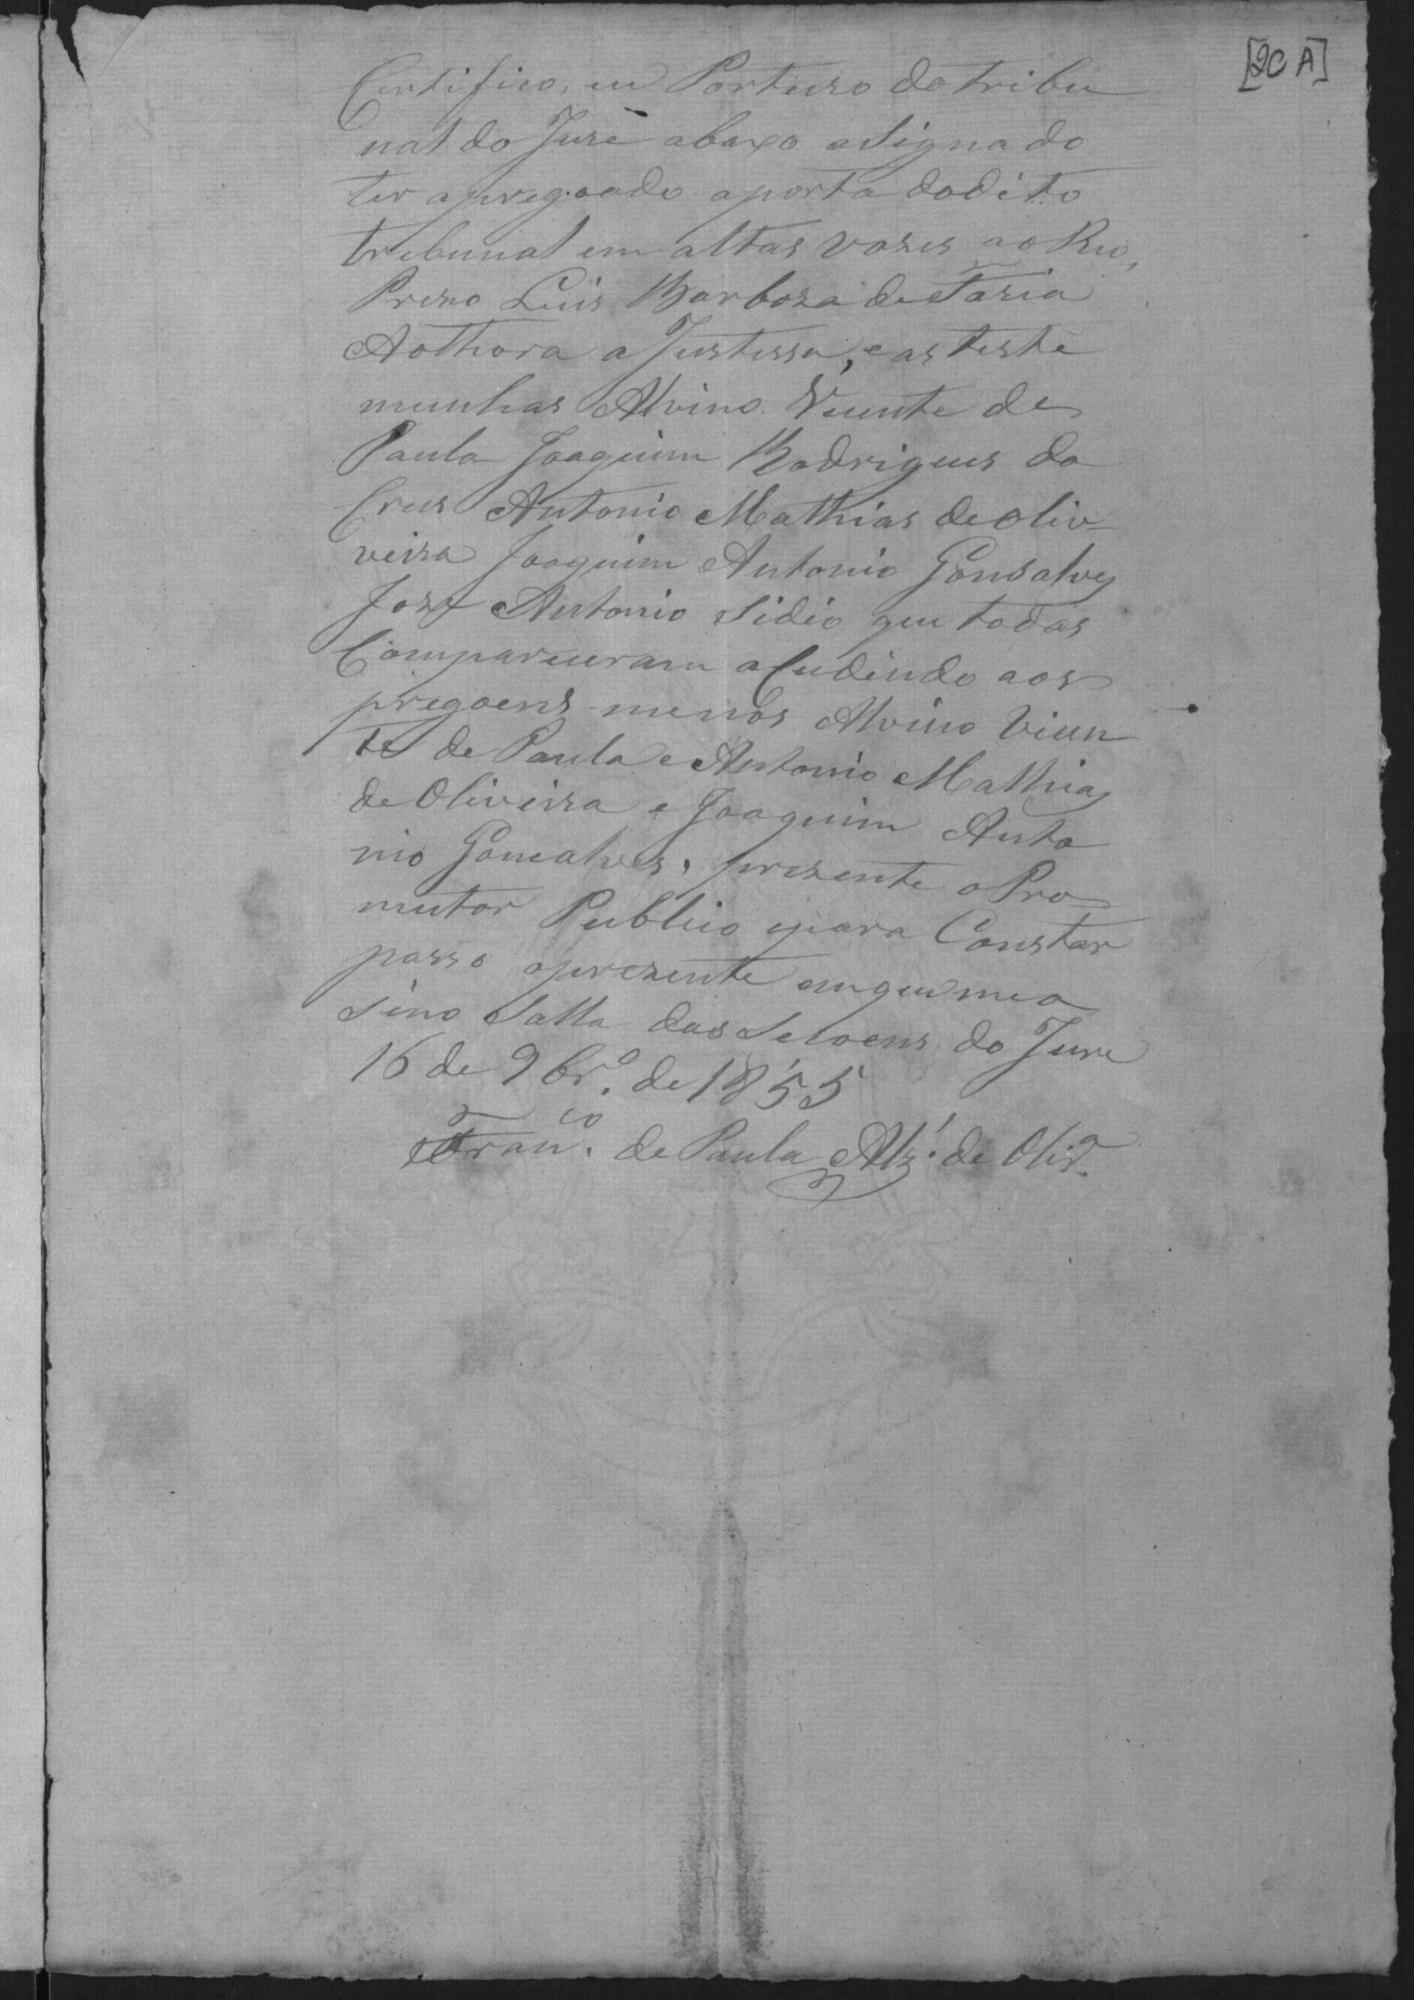 [20 A]
Certifico, eu Porteiro do tribu
nal do Jure abaxo asignado
ter apregoado aporta dodito
tribunal em altas vozes ao Reo,
Prezo Luis Barboza de Faria
Aothora a Justissa, e as teste
munhas Alvino Vicente de
Paula Joaquim Rodrigues da
Crus Antonio Mathias de Oliv
veira Joaquim Antonio Gonsalves
Jose Antonio Sidio que todas
Compareceram acudindo aos
pregoens menos Alvino Vicen
te de Paula e Antonio Mathias
de Oliveira e Joaquim Anto
nio Goncalves, prezente o Pro
mutor Publico epara Constar
passo aprezente emque me a
sino Salla das Secoens do Jure
16 de 9br.º de 1855
Fran.co de Paula Alz.' de Oliv.ª